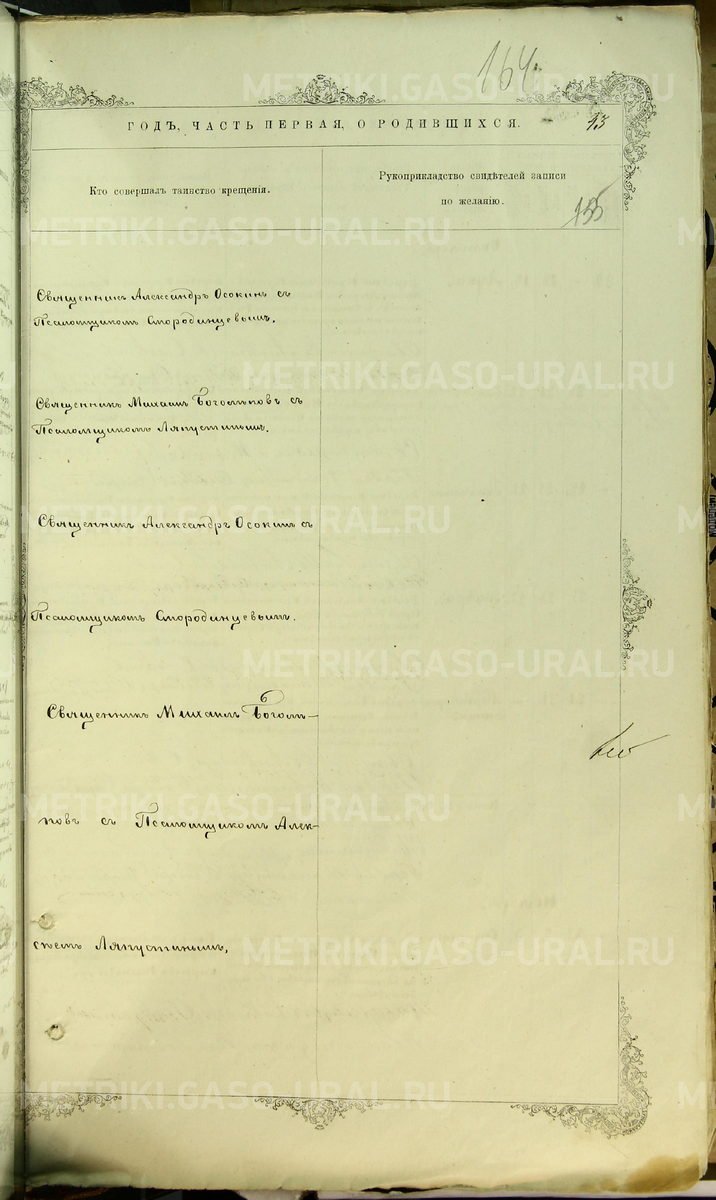 164.
ГОДЪ, ЧАСТЬ ПЕРВАЯ, О РОДИВШИХСЯ.
13
Кто совершалъ таинство крещенія.
Рукоприкладство свидѣтелей записи
по желанію.
155
Священникъ Александръ Осокинъ съ
Псаломщикомъ Смородинцевымъ.
Священникъ Михаилъ Боголѣповъ съ
Псаломщикомъ Ляпустинымъ.
Священникъ Александръ Осокинъ съ
Псаломщикомъ Смородинцевымъ.
Священникъ Михаилъ Боголѣ-
повъ съ Псаломщикомъ Алек-
сѣемъ Ляпустинымъ.
METRIKI.GASO-URAL.RU